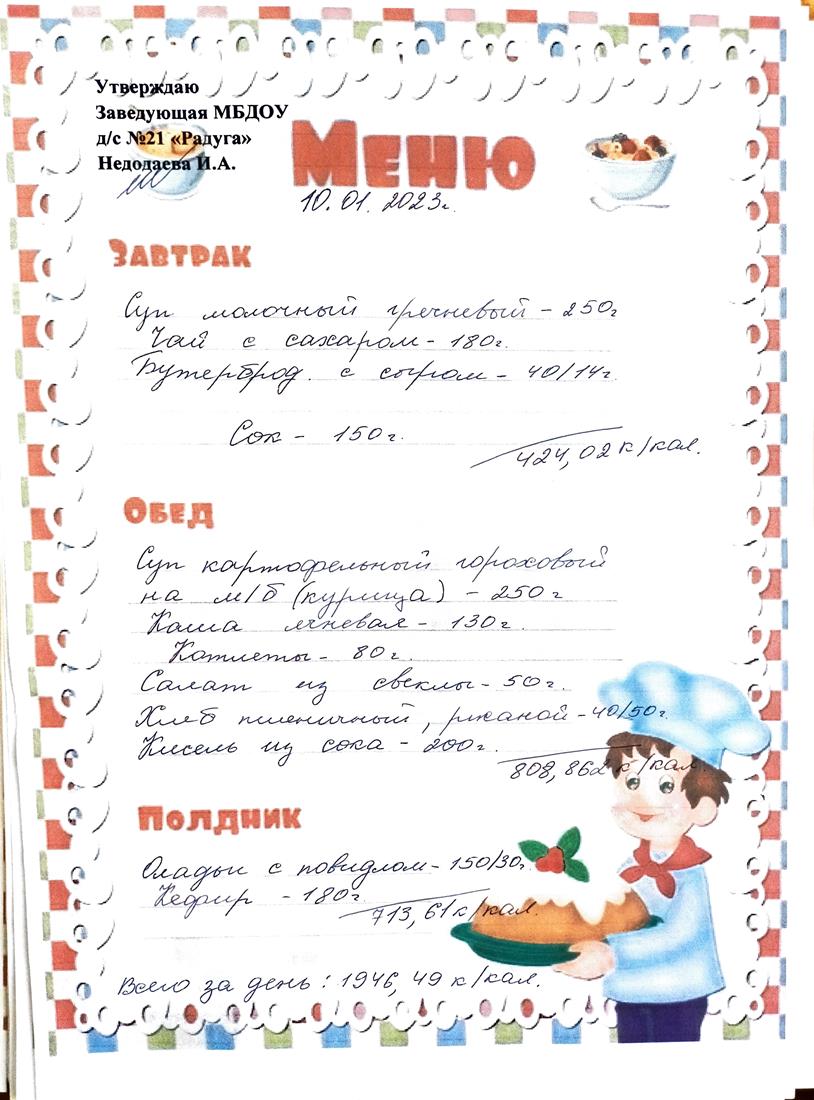 Утверждаю
Заведующая МБДОУ
д/с №21 «Радуга»
Недодаева И.А.
Меню
10.01.2023г.
Завтрак
Суп молочный гречневый - 250г
Чай с сахаром - 180г.
Бутерброд. с сыром - 40/14г.
Сок - 150г.
424,02 к/кал.
Обед
Суп картофельный гороховый
на м/б (курица) - 250г
Каша ячневая - 130г.
Котлеты - 80г.
Салат из свеклы - 50г.
Хлеб пшеничный, ржаной - 40/50г.
Кисель из сока - 200г.
808,862 к/кал.
Полдник
Оладьи с повидлом - 150/30г.
Кефир - 180г.
713,61 к/кал.
Всего за день: 1946,49 к/кал.